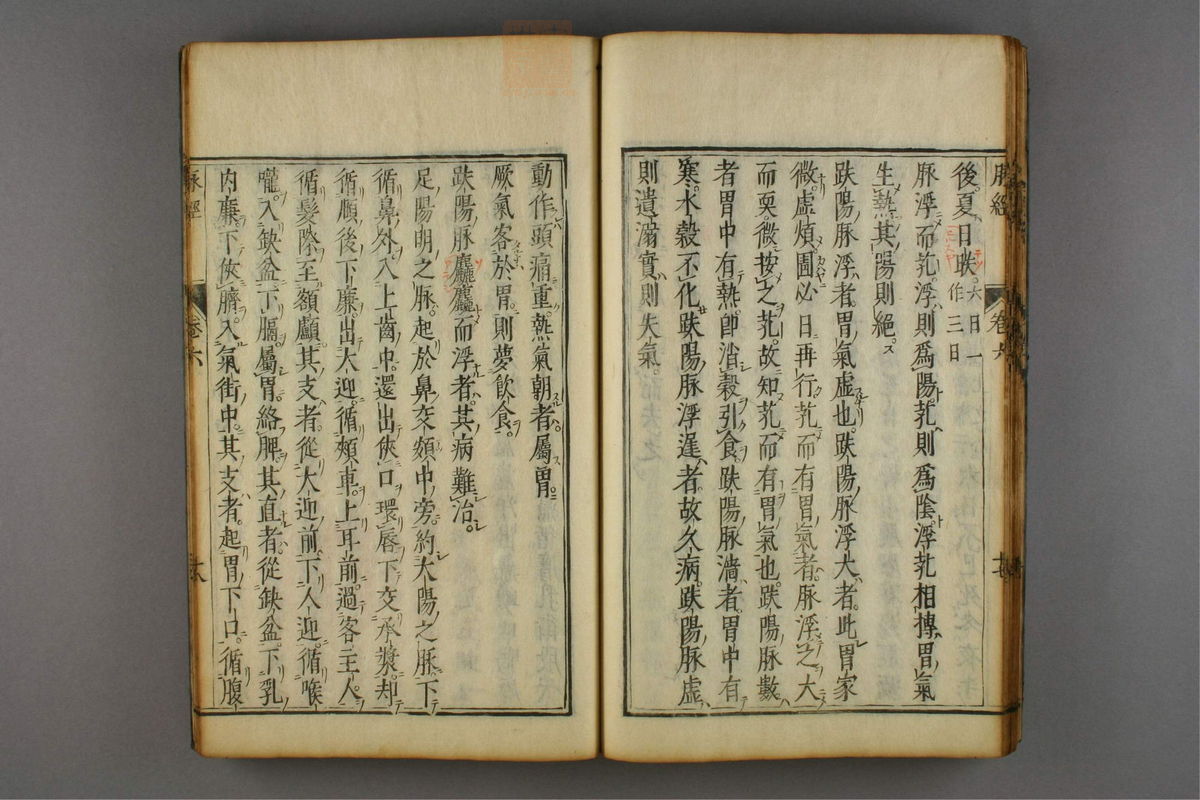 脉經 卷六 十七
後夏日昳六日一作三日
脈浮而芤浮則爲陽芤則爲陰浮芤相摶胃氣
生熱其陽則絕
趺陽脈浮者胃氣虛也趺陽脈浮大者此胃家
微虛煩圊必日再行芤而有胃氣者脈浮之大
而耎微按之芤故知芤而有胃氣也趺陽脈數
者胃中有熱即消穀引食趺陽脈濇者胃中有
寒水穀不化趺陽脈浮遲者故久病趺陽脈虛
則遺溺實則失氣
動作頭痛重熱氣朝者屬胃
厥氣客於胃則夢飲食
趺陽脈麤麤而浮者其病難治
足陽明之脈起於鼻交頞中旁約大陽之脈下
循鼻外入上齒中還出俠口環唇下交承漿却
循頤後下廉出大迎循頰車上耳前過客主人
循髮際至額顱其支者從大迎前下人迎循喉
嚨入缺盆下膈屬胃絡脾其直者從缺盆下乳
内廉下俠臍入氣街中其支者起胃下口循腹
脉經 卷六 十八